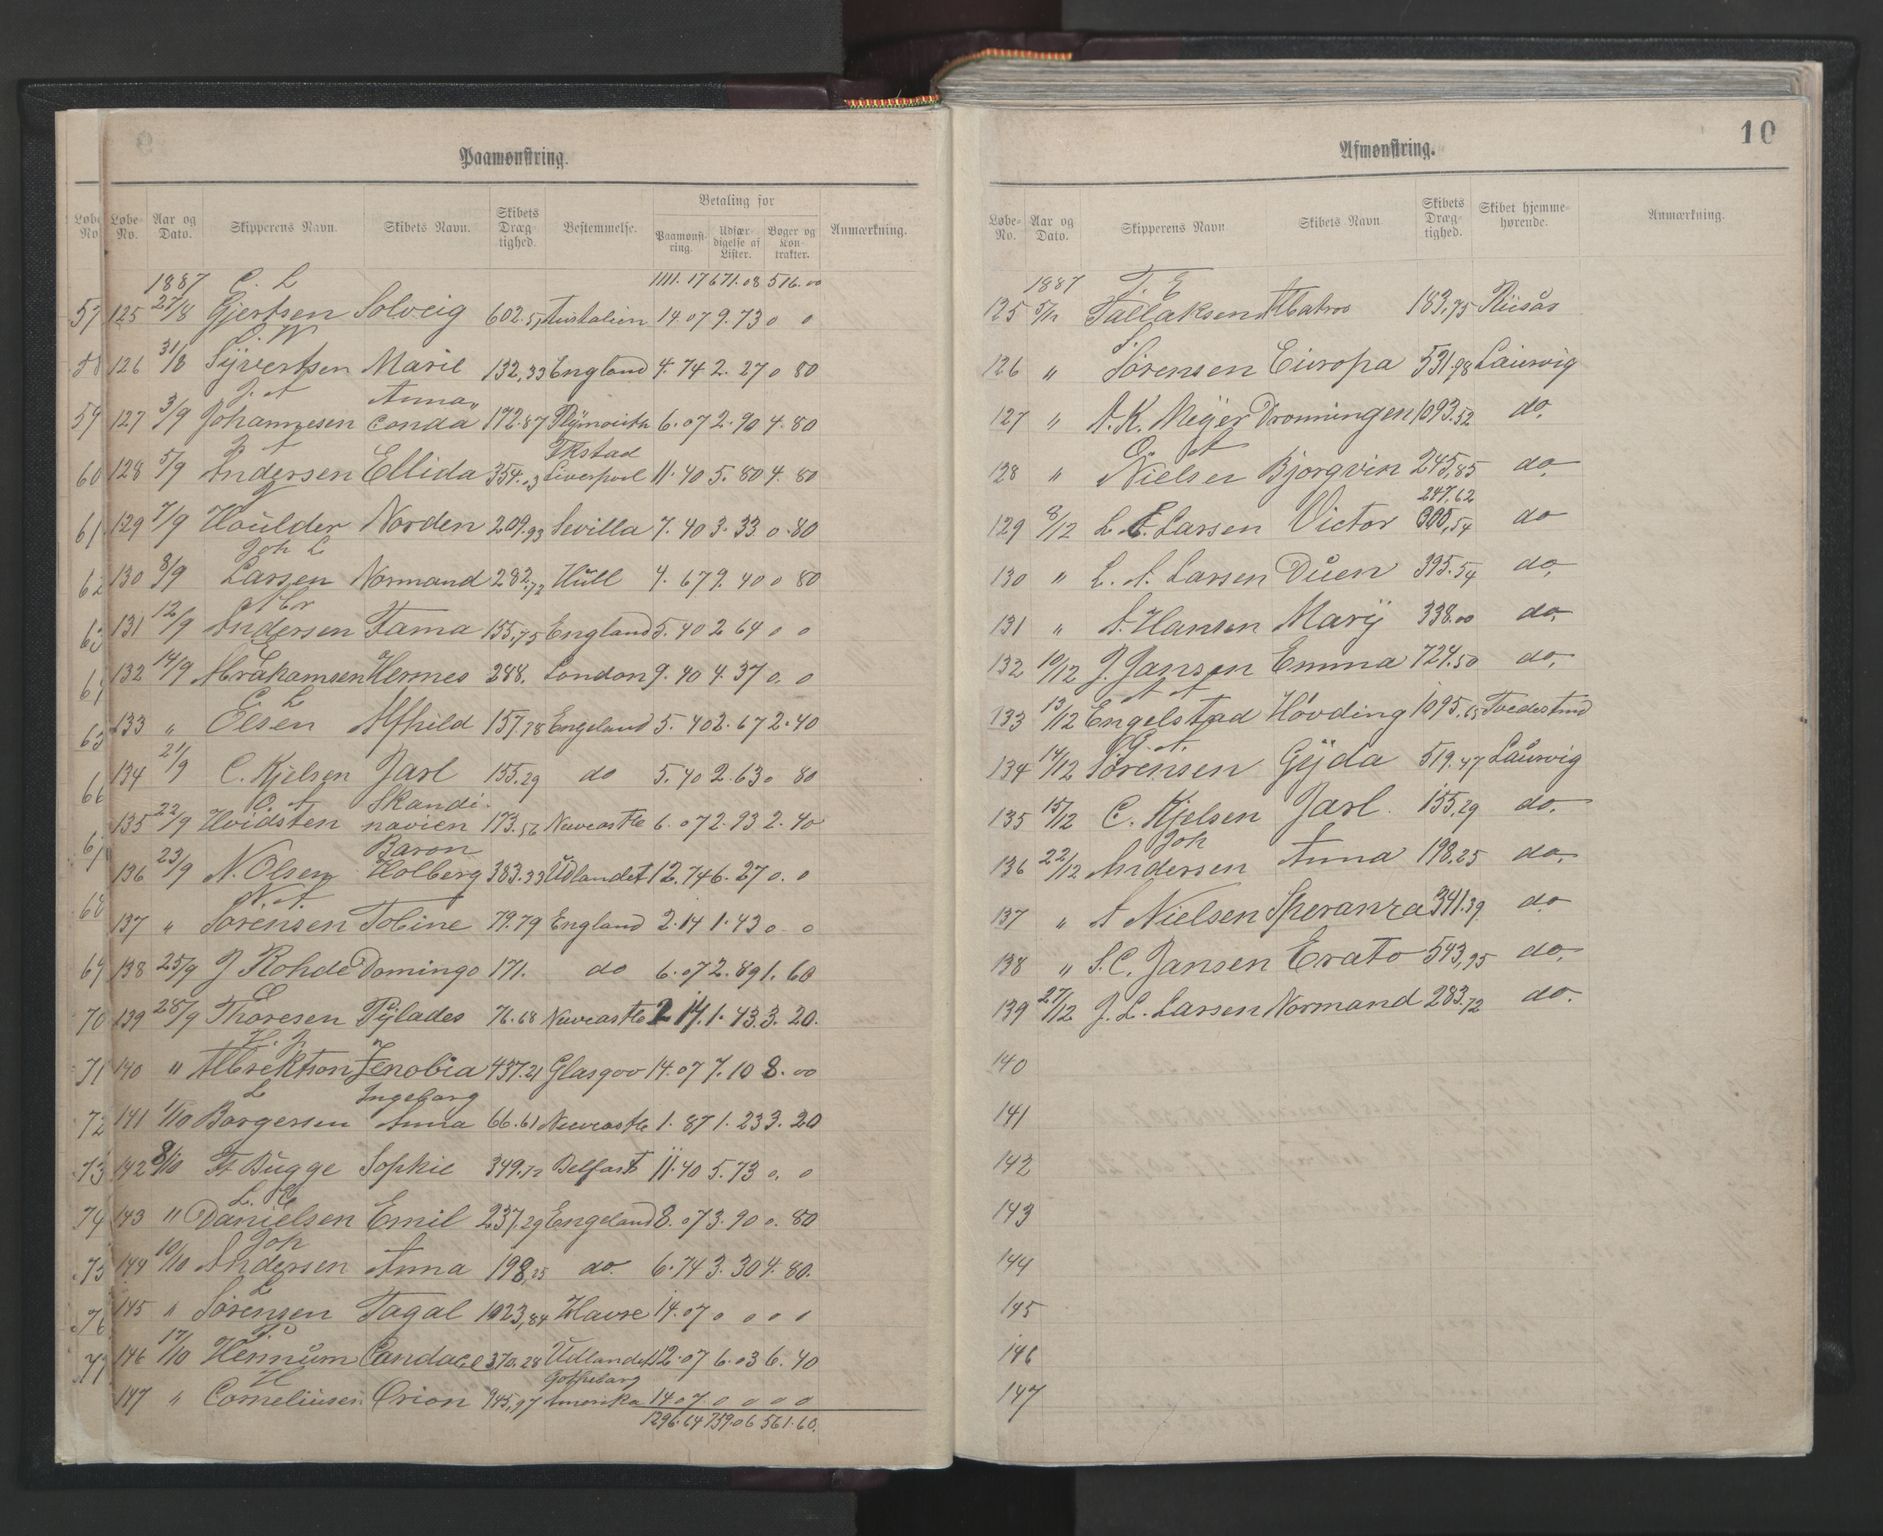 Paamønstring.
Løbe-No. Løbe-No. Aar og Dato. Skipperens Navn. Skibets Navn. Skibets Dræg-tighed. Bestemmelse. Betaling for Paamønst-ring. Udfær-digelse af Lister. Bøger og Kon-trakter. Anmærkning.
1887 1111.17 671.08 516.00
57 125 27/8 C. L Gjertsen Solveig 602.51 Australien 14.07 9.73 0 0
126 31/8 C. W Syvertsen Marie 132,33 England 4.74 2.27 0 80
59 127 3/9 J. A Johannesen Anna-conda 172.87 Plymouth 6.07 2.90 4.80
60 128 5/9 Andersen Ellida 354.03 Fkstad Liverpool 11.40 5.80 4.80
61 129 7/9 Houlder Norden 209.93 Sevilla 7.40 3.33 0.80
62 130 8/9 Joh L Larsen Normand 282.72 Hull 4.67 9.40 0 80
63 131 12/9 Abr Andersen Fama 155,75 England 5.40 2 64 0 0
132 14/9 Abrahamsen Hermes 288. London 9.40 4.37 0. 0
65 133 " C. L Olsen Alfhild 157.78 Engeland 5.40 2.67 2.40
66 134 21/9 C. Kjelsen Jarl 155.29 do 5.40 2.63 0 80
135 22/9 O. A Hvidsten Skandi-navien 173.56 Newcastle 6.07 2.93 2.40
136 23/9 N. Olsen Baron Holberg 383.33 Udlandet 12.74 6.27 0. 0
68 137 " N. A. Sørensen Tobine 79.79 England 2.14 1.43 0. 0
69 138 25/9 J Rohde Domingo 171. do 6.07 2.89 1.60
70 139 28/9 Thoresen Pylades 76.68 Newcastle 2 14 1.43 3.20.
71 140 " H. J Albrektson Zenobia 437.21 Glasgov 14.07 7.10 8.00
72 141 1/10 L Borgersen Ingeborg Anna 66.61 Newcastle 1.87 1.23 3.20
73 142 8/10 Fr Bugge Sophie 349.72 Belfast 11.40 5.73 0. 0
74 143 " L. C Danielsen Emil 237.29 Engeland 8.07 3.90 0.80
75 144 10/10 Joh Andersen Anna 198,25 do. 6.74 3.30 4.80.
76 145 " L Sørensen Tagal 1023,84 Havre 14.07 0 0 0 0
77 146 17/10 Hennum Candace 370.28 Udlandet 12.07 6.03 6.40
147 " H Corneliusen Orion 945,97 Gothebarg Amerika 14.07 0 0 0 0
1296.64 759.06 561.60.
10
Afmønstring.
Løbe-No. Aar og Dato. Skipperens Navn. Skibets Navn. Skibets Dræg-tighed. Skibet hjemme-hørende. Anmærkning.
1887
125 5/12 T. E Tallaksen Albatros 183,75 Riisøs
126 " Sørensen Europa 531.98 Laurvig
127 " A. K. Meyer Dronningen 1093.52 do.
128 " O. A Nielsen Bjørgvin 245,85 do
129 8/12 L. E. Larsen Victor 247,62 300,54 do
130 " L. A. Larsen Duen 395.54 do.
131 " A. Hansen Mary 338.00 do.
132 10/12 J. Jansen Emma 724.50 do.
133 13/12 A A Engelstad Høvding 1095,65 Tvedestrand
134 14/12 G. A. Sørensen Gyda 519.47 Laurvig
135 15/12 C. Kjelsen Jarl. 155,29 do.
136 22/12 Joh Andersen Anna 198.25 do.
137 " A Nielsen Speranza 341.39 do
138 " S. C. Jansen Erato 543,95 do.
139 27/12 J. L. Larsen Normand 283.72 do.
140
141
142
143
144
145
146
147